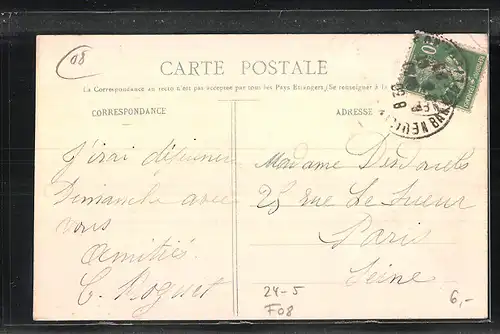 08
CARTE POSTALE
La Correspondance au recto n'est pas acceptée par tous les Pays Etrangers (Se renseigner à la
CORRESPONDANCE
ADRESSE
J'irai déjeuner
Dimanche avec
vous
Amitiés
C. Roguet
Madame
25 rue Le Sueur
Paris
Seine
24-5
F08
6,-